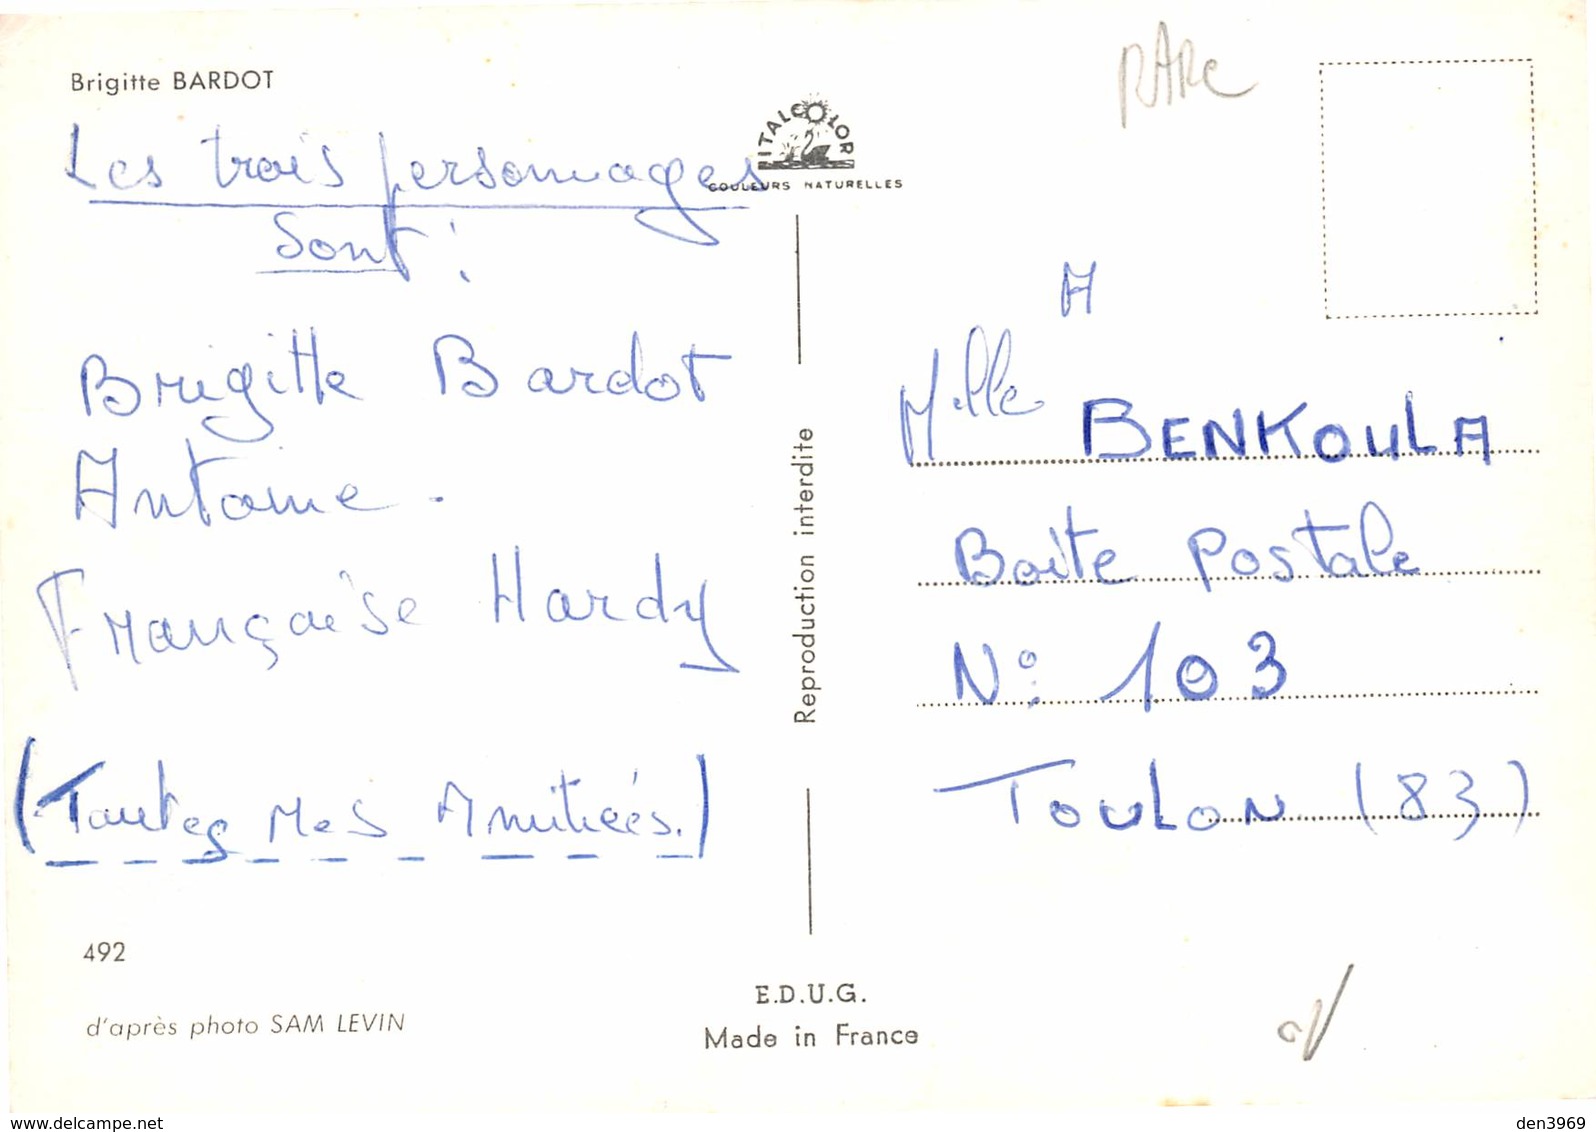 Brigitte BARDOT
Les trois personnages
sont :
Brigitte Bardot
Antoine.
Françoise Hardy
(Toutes Mes Amitiées.)
492
d'après photo SAM LEVIN
ITALCOLOR
COULEURS NATURELLES
Reproduction interdite
E.D.U.G.
Made in France
RARE
A
Mlle BENKOULA
Boite Postale
N°: 103
TOULON (83)
www.delcampe.net
den3969